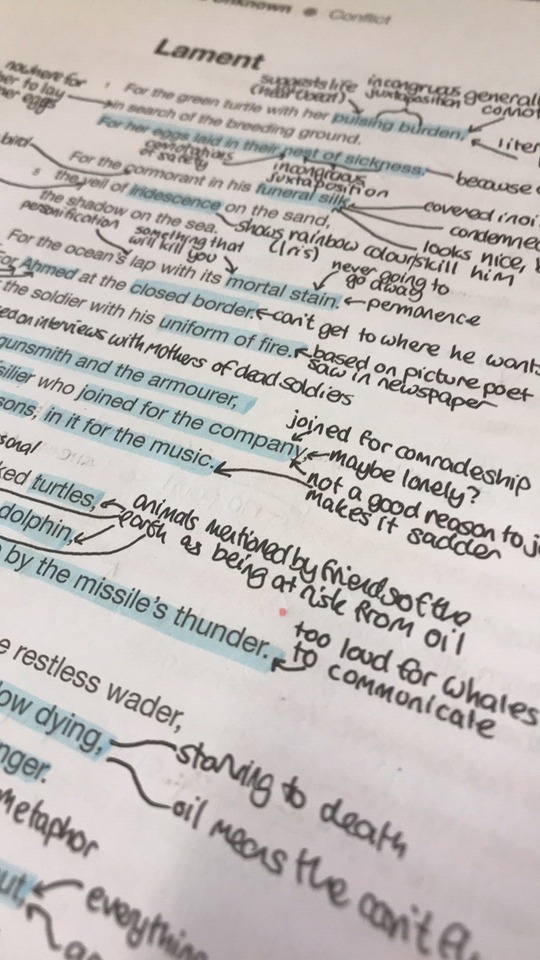 Unknown ● Conflict
Lament
nowhere for
her to lay
her eggs
suggests life
(heartbeat)
incongruous
juxtaposition
general
For the green turtle with her pulsing burden,
in search of the breeding ground.
For her eggs laid in their nest of sickness.
because
connotations
of safety
incongruous
juxtaposition
bird
For the cormorant in his funeral silk,
covered in oi
condemned
looks nice,
kill him
5 the veil of iridescence on the sand,
the shadow on the sea.
shows rainbow colours
(Iris)
personification
something that
will kill you
never going to
go away
For the ocean's lap with its mortal stain.
permanence
For Ahmed at the closed border.
can't get to where he want
the soldier with his uniform of fire.
based on picture poet
saw in newspaper
ed on interviews with mothers of dead soldiers
gunsmith and the armourer,
silier who joined for the company,
joined for comradeship
maybe lonely?
sons, in it for the music.
not a good reason to jo
makes it sadder
sonal
ked turtles,
dolphin,
animals mentioned by friends of the
earth as being at risk from oil
by the missile's thunder.
too loud for whales
to communicate
e restless wader,
ow dying,
starving to death
nger.
oil means the can't
metaphor
ut,
everything